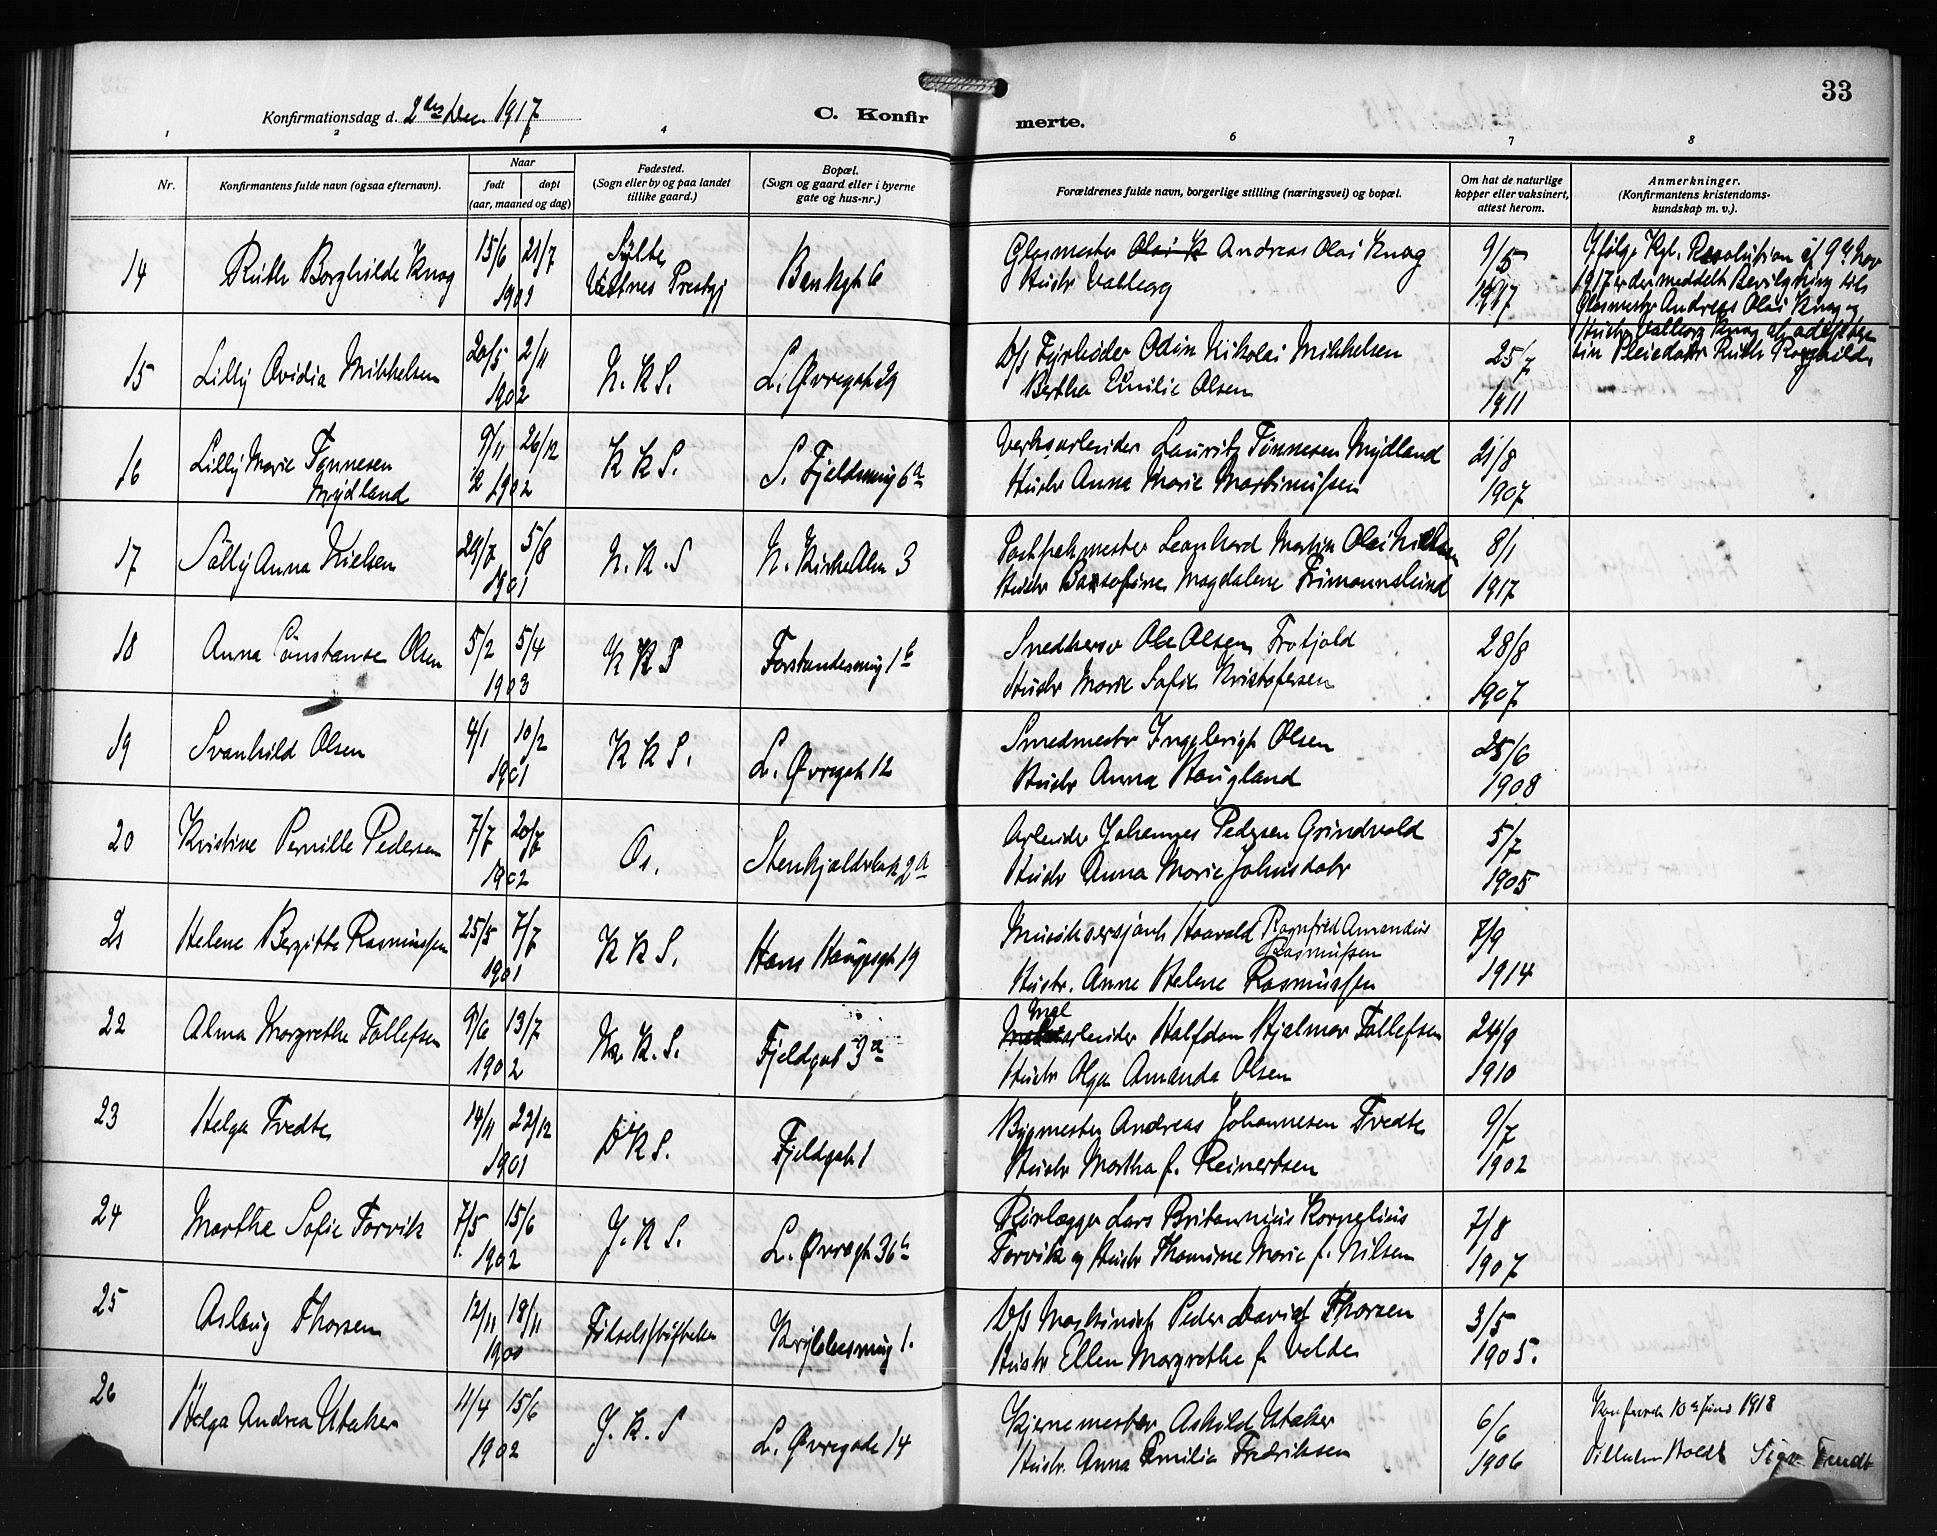 33
Konfirmationsdag d. 2den Dec. 1917
C. Konfirmerte.
1 2 3 4 6 7 8
Nr.
Konfirmantens fulde navn (ogsaa efternavn).
Naar
født
døpt
(aar, maaned og dag)
Fødested.
(Sogn eller by og paa landet
tillike gaard.)
Bopæl.
(Sogn og gaard eller i byerne
gate og hus-nr.)
Forældrenes fulde navn, borgerlige stilling (næringsvei) og bopæl.
Om hat de naturlige
kopper eller vaksinert,
attest herom.
Anmerkninger.
(Konfirmantens kristendoms-
kundskap m. v.).
14 Ruth Borghilde Knag 15/6 21/7 1902 Sylte Vestnes Prestgj Bankgt 6
Glasmester Olai K Andreas Olai Knag
Hustr Valborg
9/5 1917
Ifølge Kgl. Resolution af 9de Nov
1917 er der meddelt Bevilgning til
Glasmester Andreas Olai Knag og
Hustru Valborg Knag at adoptere
sin Pleiedatter Ruth Borghilde
15 Lilly Ovidia Mikkelsen 20/5 2/11 1902 N. K S. L. Øvregt 29
D/s Fyrbøder Odin Nikolai Mikkelsen
Bertha Emilie Olsen
25/7 1911
16 Lilly Marie Tønnesen Mydland 9/11 26/12 1902 K K S. S. Fjeldsmug 6a
Verksarbeider Laurits Tønnesen Mydland
Hustr Anna Marie Martinussen
21/8 1907
17 Sally Anna Nielsen 29/7 5/8 1901 N. K. S N. Kirke Alm 3
Postpakmester Leonhard Martin Olai Nielsen
Hustr Magdalene Frimannslund
8/1 1917
18 Anna Constanse Olsen 5/2 5/4 1903 K K S Forstandersmug 1b
Ole Olsen
Hustr Marie Sofie Kristofersen
28/8 1907
19 Svanhild Olsen 4/1 10/2 1901 K K S. L. Øvregt 12
Smedmestr Olsen
Hustr Anna Haugland
25/6 1908
20 Kristine Pernille Pedersen 7/7 20/7 1902 Os. 2a
Arbeider Johannes Pedersen Grindvold
Hustr Anna Marie Johnsdatr
5/7 1905
21 Helene Bergitte Rasmussen 25/5 7/7 1901 K K S. Hans Haugesgt 19
Musiksersjant Haarald Ragnfred Amandus
Rasmussen
Hustr. Anne Helene Rasmussen
7/9 1914
22 Alma Margrethe Tollefsen 9/6 13/7 1902 K. S. Fjeldgat 3a
Møl arbeider Halfdan Hjalmar Tollefsen
Hustr Olga Amanda Olsen
24/9 1910
23 Helga Tvedte 14/11 22/12 1901 D K S. Fjeldgat 1
Bygmester Andreas Johannesen Tvedte
Hustr Martha f. Reinertsen
9/7 1902
24 Marthe Sofie Torvik 7/5 15/6 1902 J. K S. L. Øvregt 36b
Rørlægger Lars Britannius Kornelius
Torvik og Hustr Thomine Marie f. Nilsen
7/8 1907
25 Aslaug Thorsen 12/11 18/11 1900 Fødselsstiftelsen 1.
D/s Maskinist Peder David Thorsen
Hustr Ellen Margrethe f. Velde
3/5 1905.
26 Helga Andrea Utaker 11/4 15/6 1902 J. K. S L. Øvregade 14
Askild Utaker
Hustr. Anna Emilie Fredriksen
6/6 1906
Konfereret 10de Juni 1918
Vilhelm Holdt Sign